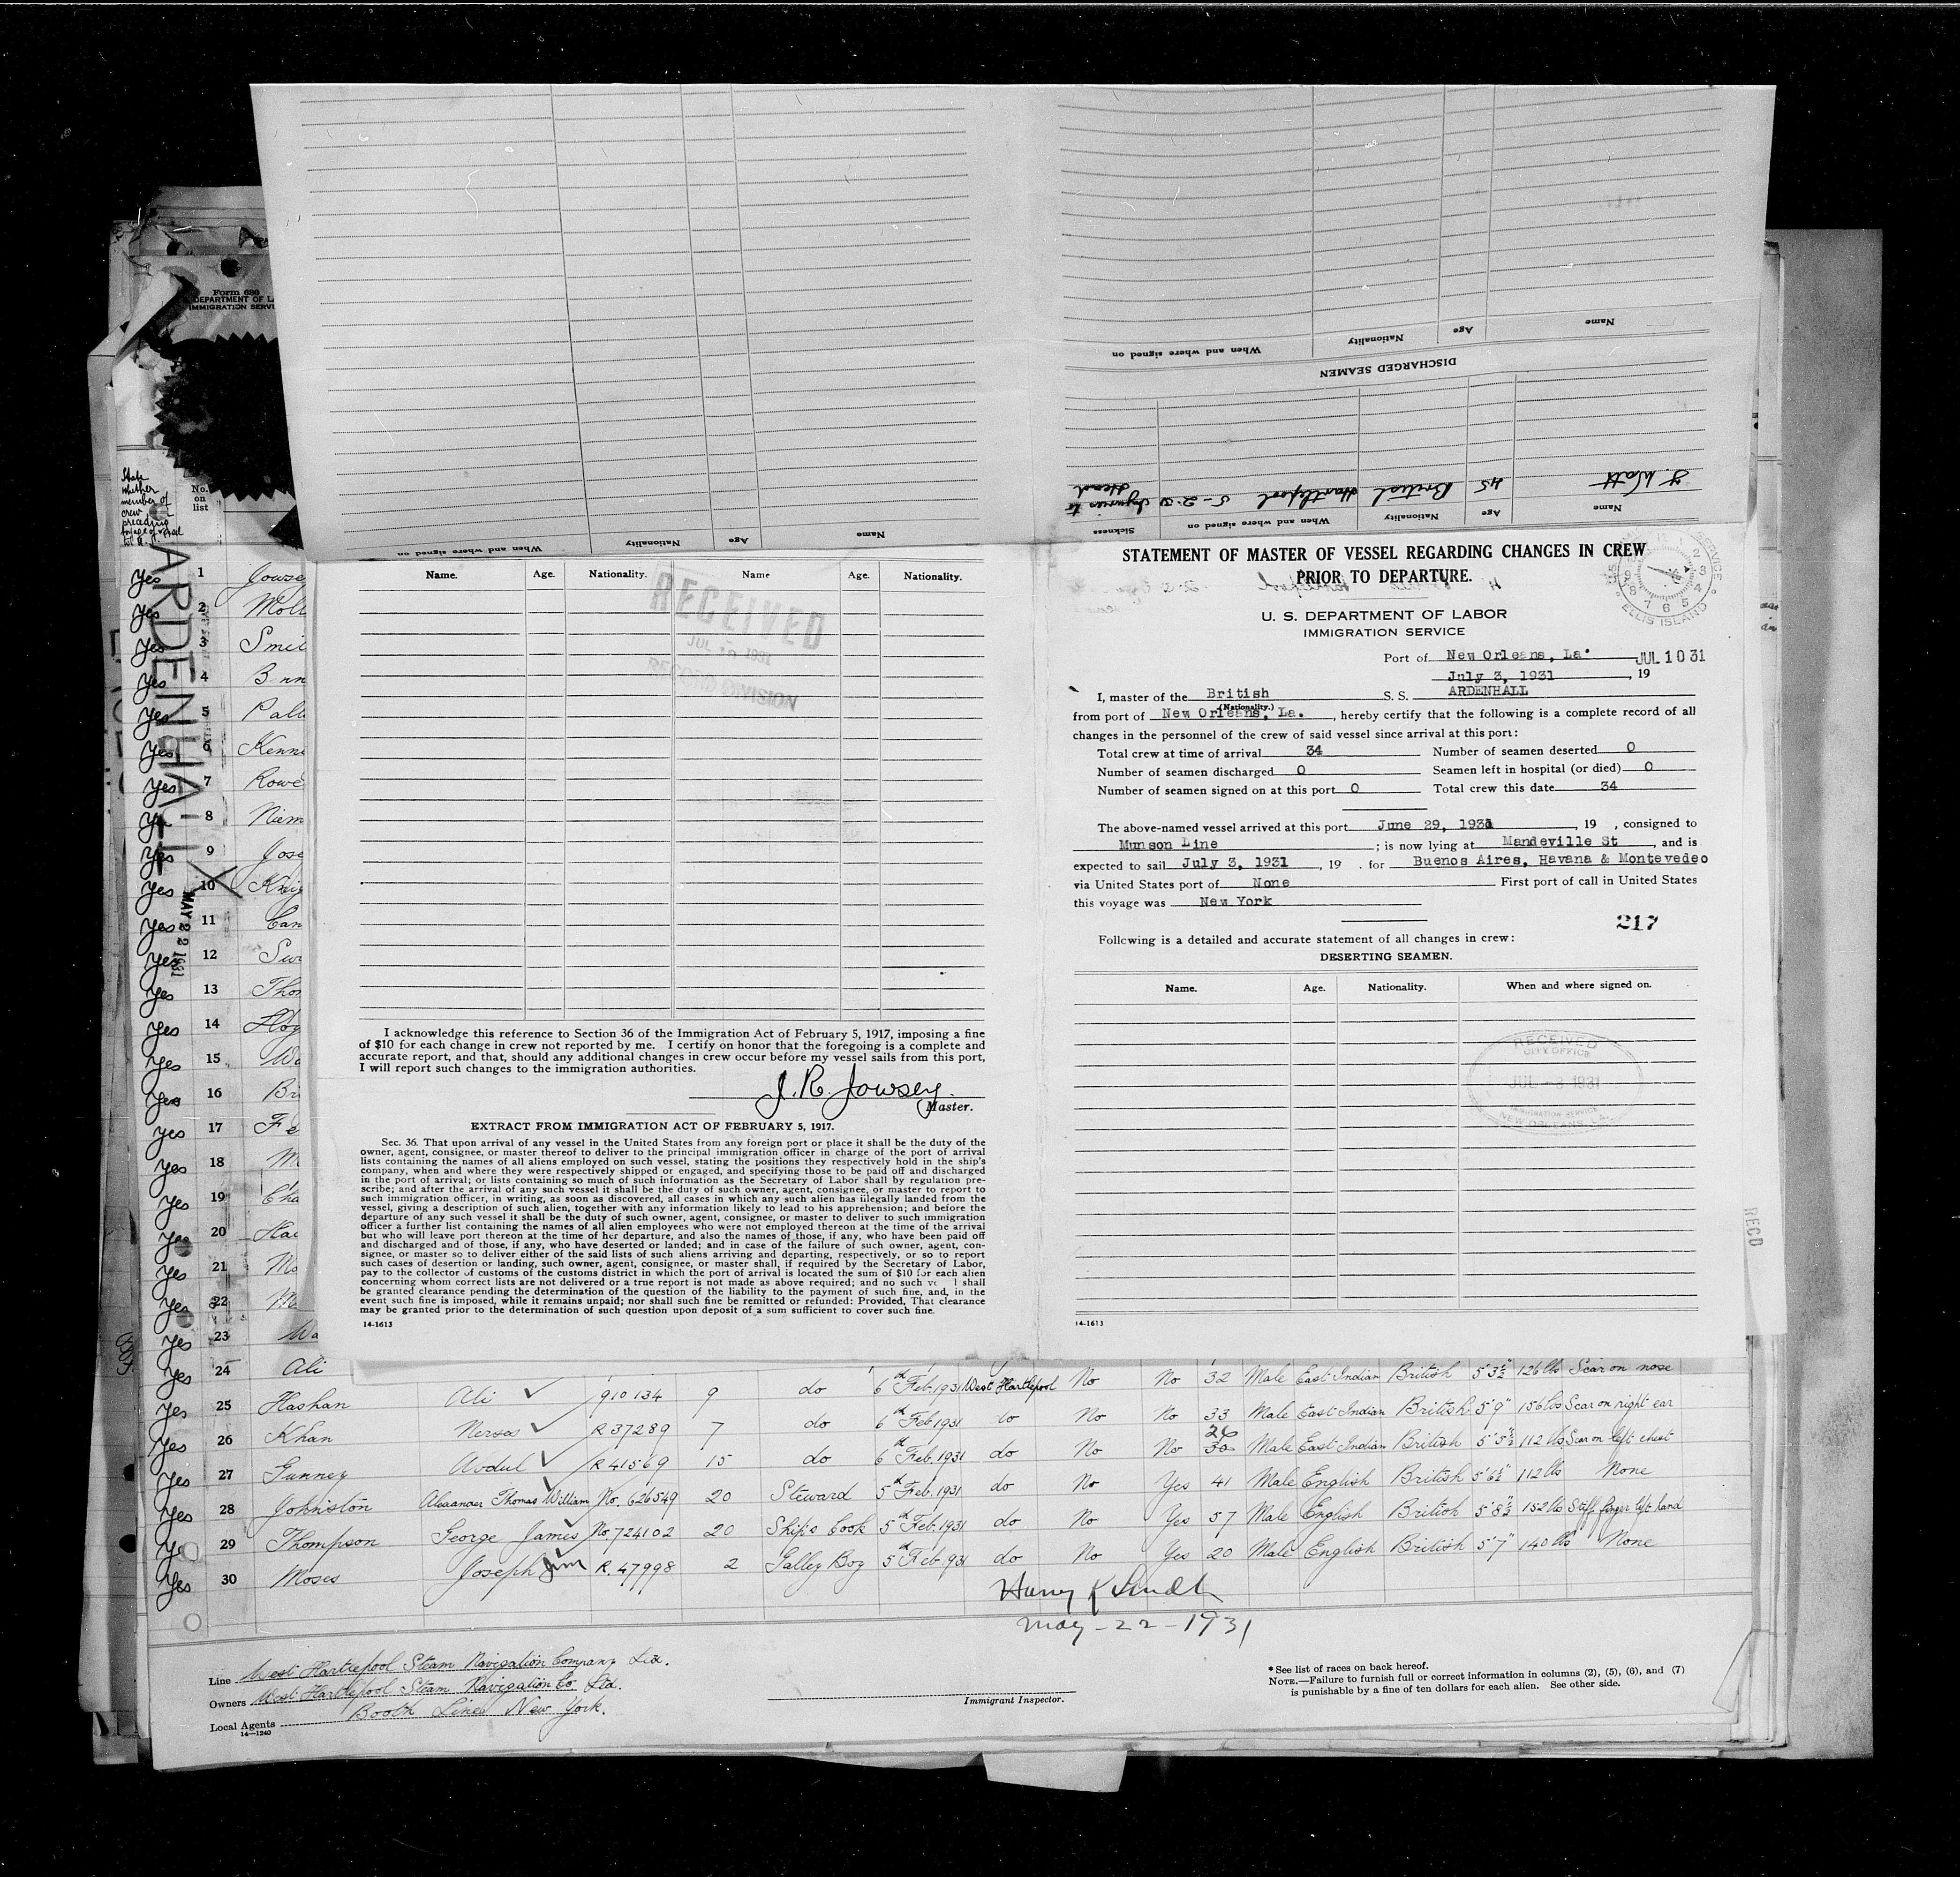 Form 680
DEPARTMENT OF LA
IMMIGRATION SERVI
ARDENHALL
MAY 22 1931
State
whether
member of
crew
preceding
No.
on
list
When and where signed on
Nationality
Age
Name
When and where signed on
Nationality
Age
Name
DISCHARGED SEAMEN
Sickness
When and where signed on
Nationality
Age
Name
J. Watt 45 British Hartlepool 5-2-31 Injuries to
Head
Name. Age. Nationality. Name Age. Nationality.
RECEIVED
JUL 10 1931
RECORD DIVISION
I acknowledge this reference to Section 36 of the Immigration Act of February 5, 1917, imposing a fine
of $10 for each change in crew not reported by me. I certify on honor that the foregoing is a complete and
accurate report, and that, should any additional changes in crew occur before my vessel sails from this port,
I will report such changes to the immigration authorities.
J. R. Jowsey.
Master.
EXTRACT FROM IMMIGRATION ACT OF FEBRUARY 5, 1917.
Sec. 36. That upon arrival of any vessel in the United States from any foreign port or place it shall be the duty of the
owner, agent, consignee, or master thereof to deliver to the principal immigration officer in charge of the port of arrival
lists containing the names of all aliens employed on such vessel, stating the positions they respectively hold in the ship's
company, when and where they were respectively shipped or engaged, and specifying those to be paid off and discharged
in the port of arrival; or lists containing so much of such information as the Secretary of Labor shall by regulation pre-
scribe; and after the arrival of any such vessel it shall be the duty of such owner, agent, consignee, or master to report to
such immigration officer, in writing, as soon as discovered, all cases in which any such alien has illegally landed from the
vessel, giving a description of such alien, together with any information likely to lead to his apprehension; and before the
departure of any such vessel it shall be the duty of such owner, agent, consignee, or master to deliver to such immigration
officer a further list containing the names of all alien employees who were not employed thereon at the time of the arrival
but who will leave port thereon at the time of her departure, and also the names of those, if any, who have been paid off
and discharged and of those, if any, who have deserted or landed; and in case of the failure of such owner, agent, con-
signee, or master so to deliver either of the said lists of such aliens arriving and departing, respectively, or so to report
such cases of desertion or landing, such owner, agent, consignee, or master shall, if required by the Secretary of Labor,
pay to the collector of customs of the customs district in which the port of arrival is located the sum of $10 for each alien
concerning whom correct lists are not delivered or a true report is not made as above required; and no such ve l shall
be granted clearance pending the determination of the question of the liability to the payment of such fine, and, in the
event such fine is imposed, while it remains unpaid; nor shall such fine be remitted or refunded: Provided, That clearance
may be granted prior to the determination of such question upon deposit of a sum sufficient to cover such fine.
14-1613
STATEMENT OF MASTER OF VESSEL REGARDING CHANGES IN CREW
PRIOR TO DEPARTURE.
ELLIS ISLAND
U. S. DEPARTMENT OF LABOR
IMMIGRATION SERVICE
Port of New Orleans, La. JUL 10 31
July 3, 1931, 19
I, master of the British S. S. ARDENHALL
(Nationality.)
from port of New Orleans, La., hereby certify that the following is a complete record of all
changes in the personnel of the crew of said vessel since arrival at this port:
Total crew at time of arrival 34 Number of seamen deserted 0
Number of seamen discharged 0 Seamen left in hospital (or died) 0
Number of seamen signed on at this port 0 Total crew this date 34
The above-named vessel arrived at this port June 29, 1931, 19 , consigned to
Munson Line ; is now lying at Mandeville St, and is
expected to sail July 3, 1931, 19 . for Buenos Aires, Havana & Montevedeo
via United States port of None First port of call in United States
this voyage was New York
217
Following is a detailed and accurate statement of all changes in crew:
DESERTING SEAMEN.
Name. Age. Nationality. When and where signed on.
RECEIVED
CITY OFFICE
JUL -3 1931
IMMIGRATION SERVICE
NEW ORLEANS, LA.
RECD
14-1613
Yes 1 Jowse
Yes 2 Moll
Yes 3 Smit
Yes 4 B nn
Yes 5 Pall
Yes 6 Kenn
Yes 7 Rowe
Yes 8 Niem
Yes 9 Jose
Yes 10 Knig
Yes 11 Can
Yes 12 Swi
Yes 13 Tho
Yes 14 Hog
Yes 15 Wa
Yes 16 Br
Yes 17 Fe
Yes 18 M
Yes 19 Cha
Yes 20 Ha
Yes 21 Mo
Yes 22 M
Yes 23 Wa
Yes 24 Ali
Yes 25 Hashan Ali 910134 9 do 6th Feb. 1931 West Hartlepool No No 32 Male East Indian British 5'3½" 126 lbs Scar on nose
Yes 26 Khan Nerves R 37289 7 do 6th Feb 1931 do No No 33 Male East Indian British 5'9" 156 lbs Scar on right ear
Yes 27 Gunney Avdul R 41569 15 do 6th Feb. 1931 do No No 26 30 Male East Indian British 5'5½" 112 lbs Scar on left chest
Yes 28 Johnston Alexander Thomas William No. 626549 20 Steward 5th Feb. 1931 do No Yes 41 Male English British 5'6½" 112 lbs None
Yes 29 Thompson George James No 724102 20 Ships Cook 5th Feb. 1931 do No Yes 57 Male English British 5'8½" 152 lbs Stiff finger left hand
Yes 30 Moses Joseph Jim R. 47998 2 Galley Boy 5th Feb. 1931 do No Yes 20 Male English British 5'7" 140 lbs None
May-22-1931
Line West Hartlepool Steam Navigation Company Ltd.
Owners West Hartlepool Steam Navigation Co Ltd.
Local Agents Booth Lines New York.
14—1240
Immigrant Inspector.
* See list of races on back hereof.
NOTE.—Failure to furnish full or correct information in columns (2), (5), (6), and (7)
is punishable by a fine of ten dollars for each alien. See other side.